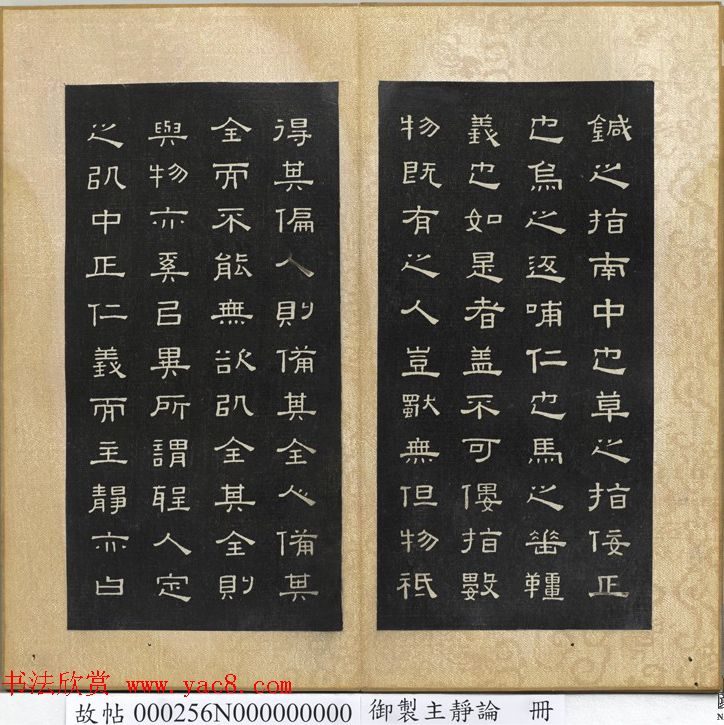 鍼之指南中也草之指佞正
也烏之返哺仁也馬之垂韁
義也如是者盖不可僂指數
物既有之人豈獸無但物祗
得其偏人則備其全人備其
全而不能無欲㕥全其全則
與物亦奚㠯異所謂聖人定
之㕥中正仁義而主靜亦白
书法欣赏 www.yac8.com
故帖 000256N000000000 御製主靜論 冊